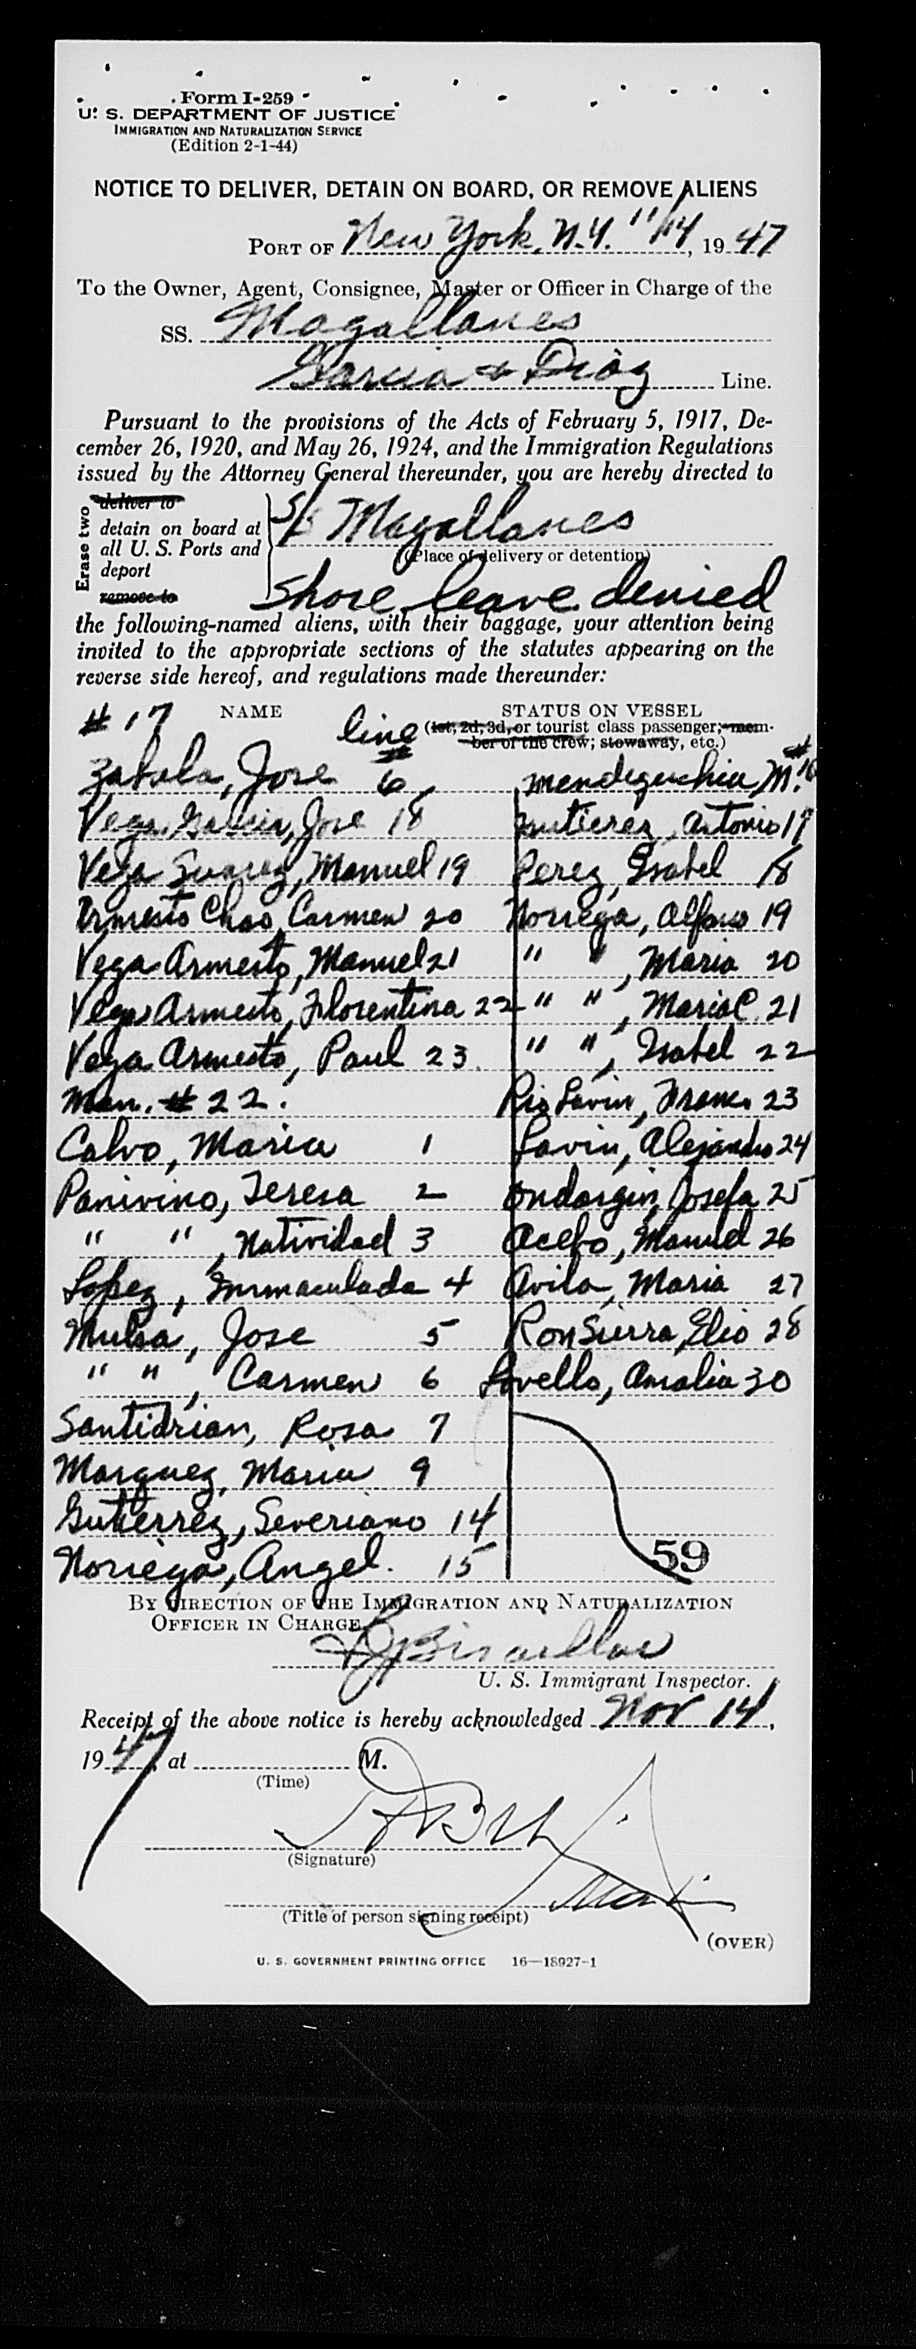 Form I-259
U. S. DEPARTMENT OF JUSTICE
IMMIGRATION AND NATURALIZATION SERVICE
(Edition 2-1-44)
NOTICE TO DELIVER, DETAIN ON BOARD, OR REMOVE ALIENS
PORT OF New York, N.Y. 11/14, 1947
To the Owner, Agent, Consignee, Master or Officer in Charge of the
SS. Magallanes
Garcia & Diaz Line.
Pursuant to the provisions of the Acts of February 5, 1917, De-
cember 26, 1920, and May 26, 1924, and the Immigration Regulations
issued by the Attorney General thereunder, you are hereby directed to
Erase two
deliver to
detain on board at
all U. S. Ports and
deport
remove to
S/S Magallanes
(Place of delivery or detention)
Shore leave denied
the following-named aliens, with their baggage, your attention being
invited to the appropriate sections of the statutes appearing on the
reverse side hereof, and regulations made thereunder:
# 17 NAME line #
STATUS ON VESSEL
(1st, 2d, 3d, or tourist class passenger; mem-
ber of the crew; stowaway, etc.)
Zabala, Jose 6
Vega Garcia, Jose 18
Vega Suarez, Manuel 19
Armesto Chao, Carmen 20
Vega Armesto, Manuel 21
Vega Armesto, Florentina 22
Vega Armesto, Paul 23
Man. # 22.
Calvo, Maria 1
Panivino, Teresa 2
" " , Natividad 3
Lopez, Inmaculada 4
Mulsa, Jose 5
" " , Carmen 6
Santidrian, Rosa 7
Marquez, Maria 9
Gutierrez, Severiano 14
Noriega, Angel 15
#
M. 16
Gutierez, Antonio 17
Perez, Isabel 18
Noriega, 19
" " , Maria 20
" " , Maria C. 21
" " , Isabel 22
Rio Lavin, 23
Lavin, Alejandro 24
Josefa 25
Acebo, Manuel 26
Avila, Maria 27
Ron Sierra, Elio 28
Lovello, Amalia 30
59
BY DIRECTION OF THE IMMIGRATION AND NATURALIZATION
OFFICER IN CHARGE
U. S. Immigrant Inspector.
Receipt of the above notice is hereby acknowledged Nov 14,
1947, at M.
(Time)
(Signature)
(Title of person signing receipt)
(OVER)
U. S. GOVERNMENT PRINTING OFFICE 16—18927-1